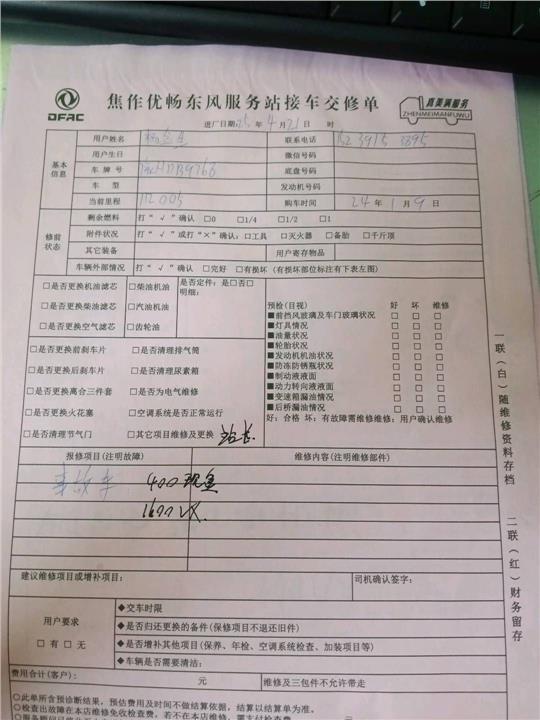 DFAC
焦作优畅东风服务站接车交修单
真美满服务
ZHENMEIMANFUWU
进厂日期: 25 年 4 月 21 日 时
基本信息
用户姓名 联系电话 152 3915 3895
用户生日 微信号码
车牌号 底盘号码
车型 发动机号码
当前里程 112005 购车时间 24 年 1 月 9 日
修前状态
剩余燃料 打“√”确认 □0 □1/4 □1/2 □1
附件状况 打“√”或打“×”确认: □工具 □灭火器 □备胎 □千斤顶
其它装备 用户寄存物品
车辆外部情况 打“√”确认 □完好 □有损坏(有损坏部位标注有下表左图)
□是否更换机油滤芯 □柴油机油 是否定件: 是□否□
明细:
□是否更换柴油滤芯 □汽油机油
□是否更换空气滤芯 □齿轮油
□是否更换前刹车片 □是否清理排气筒
□是否更换后刹车片 □是否清理尿素箱
□是否更换离合三件套 □是否为电气维修
□是否更换火花塞 □空调系统是否正常运行
□是否清理节气门 □其它项目维修及更换 站长
预检(目视) 好 坏 维修
■前挡风玻璃及车门玻璃状况 □ □ □
■灯具情况 □ □ □
■油量状况 □ □ □
■轮胎状况 □ □ □
■发动机机油状况 □ □ □
■防冻防锈瓶状况 □ □ □
■制动液液面 □ □ □
■动力转向液液面 □ □ □
■变速箱漏油情况 □ □ □
■后桥漏油情况 □ □ □
好: 合格 坏: 有故障需维修维修: 用户确认维修
报修项目(注明故障) 维修内容(注明维修部件)
事故车 400现金
1600VX.
建议维修项目或增补项目: 司机确认签字:
用户要求
□有 □无
◆交车时限
◆是否归还更换的备件(保修项目不退还旧件)
◆是否增补其他项目(保养、年检、空调系统检查、加装项目等)
◆车辆是否需要清洁:
费用合计(客户): 元 维修及三包件不允许带走
◇此单所含预诊断结果,预估费用及时间不做结算依据,结算以结算单为准。
◇检查出故障在本店维修免收检查费,若不在本店维修,需支付检查费
一联(白)随维修资料存档
二联(红)财务留存